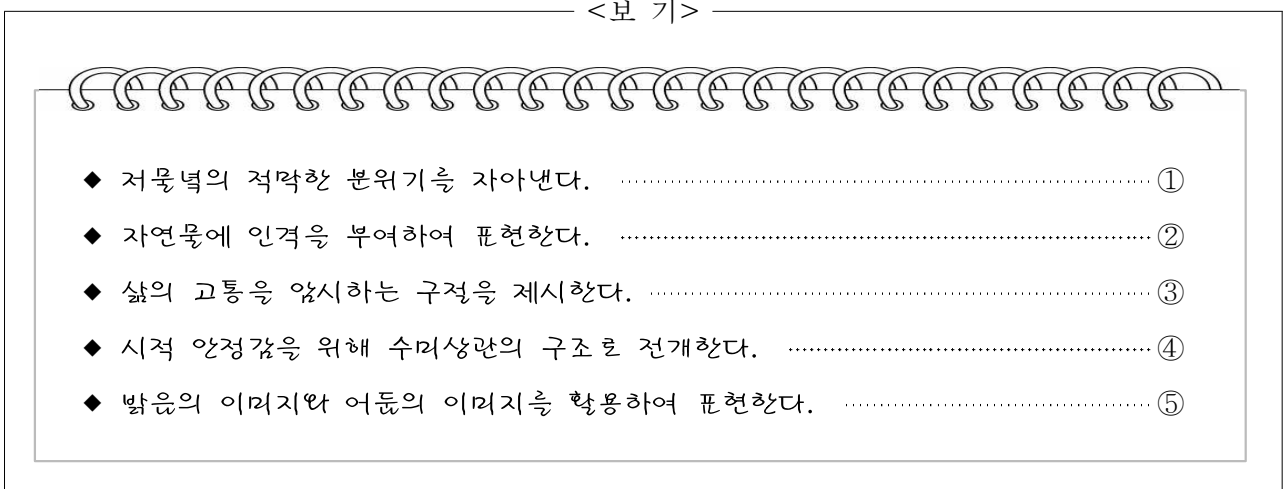 <보 기>
◆ 저물녘의 적막한 분위기를 자아낸다. ①
◆ 자연물에 인격을 부여하여 표현한다. ②
◆ 삶의 고통을 암시하는 구절을 제시한다. ③
◆ 시적 안정감을 위해 수미상관의 구조로 전개한다. ④
◆ 밝음의 이미지와 어둠의 이미지를 활용하여 표현한다. ⑤